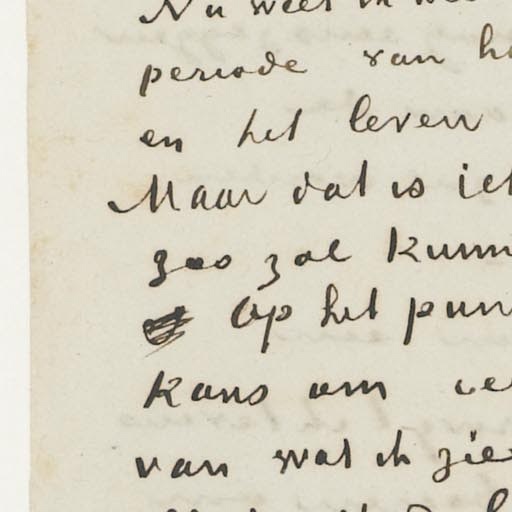 Nu weet ik
periode van
en het leven
Maar dat is iet
zoo zal kunn
Op het pun
kans om
van wat ik zie